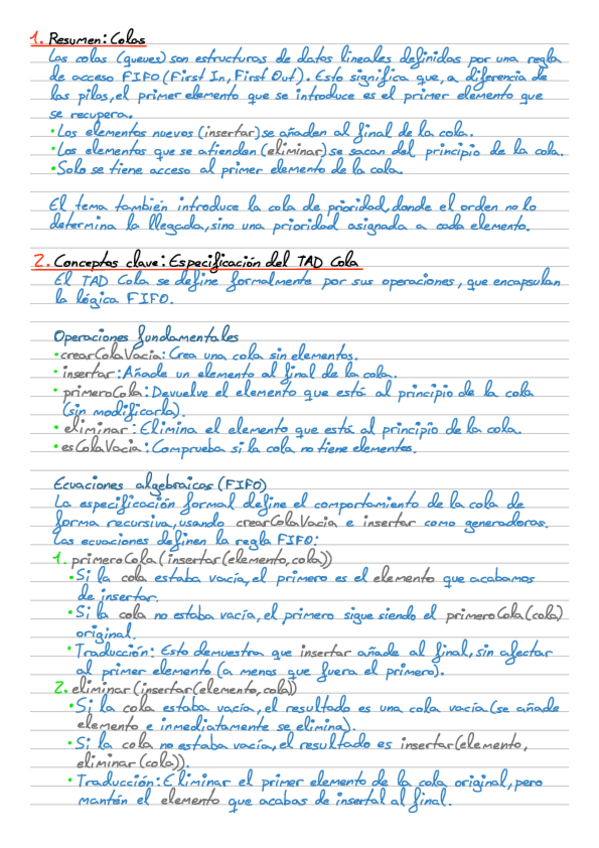 1. Resumen: Colas
Las colas (queues) son estructuras de datos lineales definidas por una regla
de acceso FIFO (First In, First Out). Esto significa que, a diferencia de
las pilas, el primer elemento que se introduce es el primer elemento que
se recupera.
• Los elementos nuevos (insertar) se añaden al final de la cola.
• Los elementos que se atienden (eliminar) se sacan del principio de la cola.
• Solo se tiene acceso al primer elemento de la cola.
El tema también introduce la cola de prioridad, donde el orden no lo
determina la llegada, sino una prioridad asignada a cada elemento.
2. Conceptos clave: Especificación del TAD Cola
El TAD Cola se define formalmente por sus operaciones, que encapsulan
la lógica FIFO.
Operaciones fundamentales
• crearColaVacia: Crea una cola sin elementos.
• insertar: Añade un elemento al final de la cola.
• primeroCola: Devuelve el elemento que está al principio de la cola
(sin modificarla).
• eliminar: Elimina el elemento que está al principio de la cola.
• esColaVacia: Comprueba si la cola no tiene elementos.
Ecuaciones algebraicas (FIFO)
La especificación formal define el comportamiento de la cola de
forma recursiva, usando crearColaVacia e insertar como generadoras.
Las ecuaciones definen la regla FIFO:
1. primeroCola(insertar(elemento, cola))
• Si la cola estaba vacía, el primero es el elemento que acabamos
de insertar.
• Si la cola no estaba vacía, el primero sigue siendo el primeroCola(cola)
original.
• Traducción: Esto demuestra que insertar añade al final, sin afectar
al primer elemento (a menos que fuera el primero).
2. eliminar(insertar(elemento, cola))
• Si la cola estaba vacía, el resultado es una cola vacía (se añade
elemento e inmediatamente se elimina).
• Si la cola no estaba vacía, el resultado es insertar(elemento,
eliminar(cola)).
• Traducción: Eliminar el primer elemento de la cola original, pero
mantén el elemento que acabas de insertal al final.